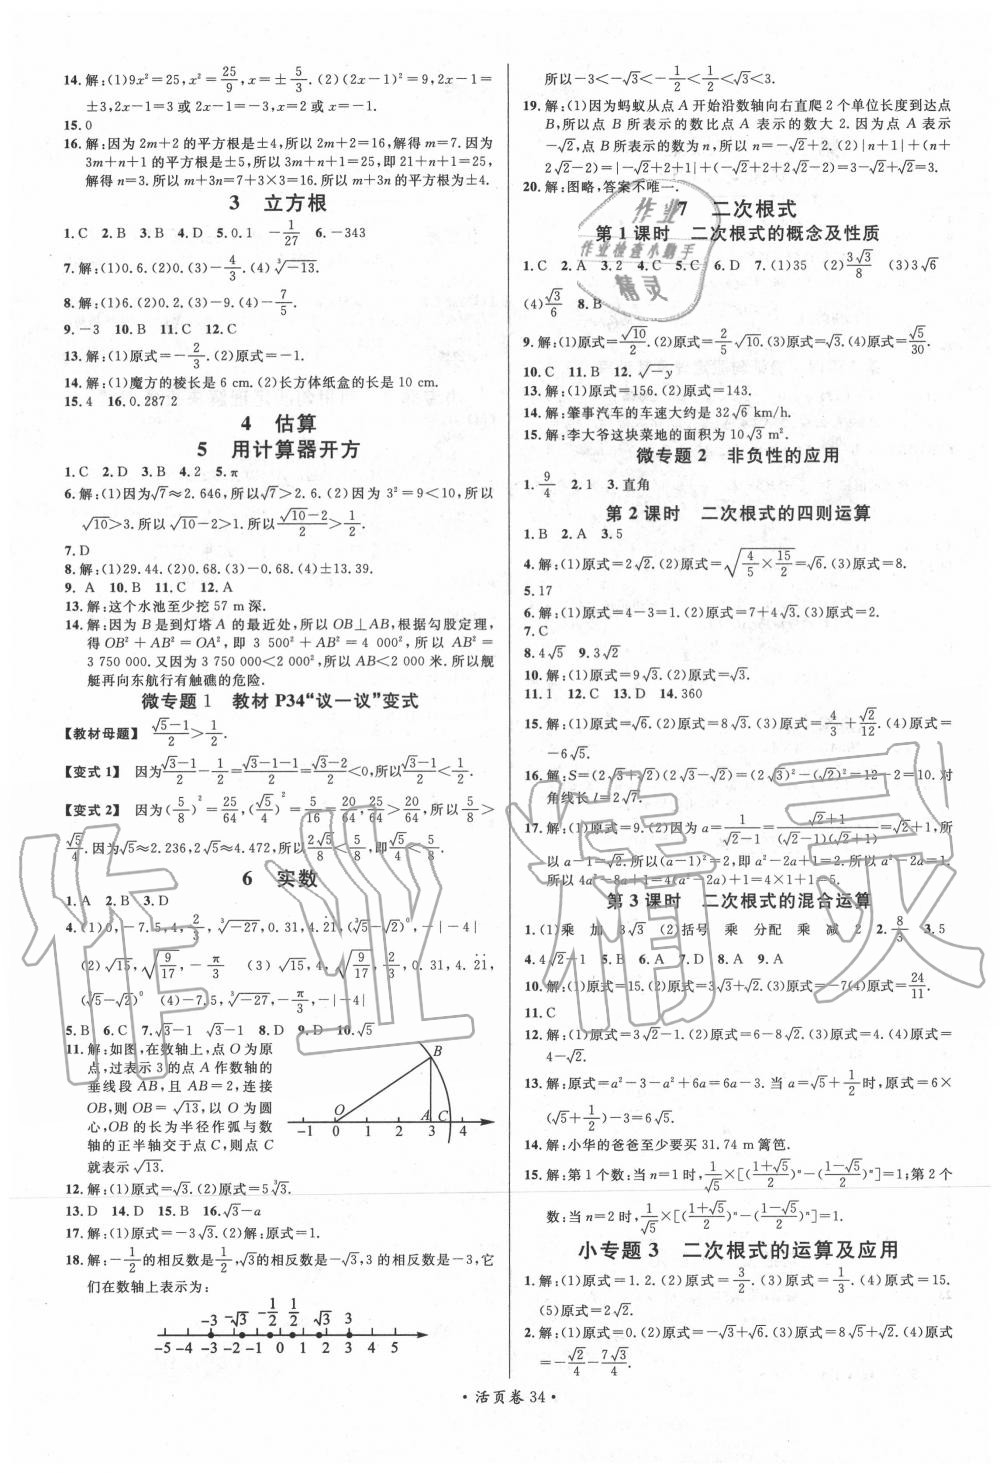 14. 解:(1)9x²=25,x²=25/9,x=±5/3.(2)(2x-1)²=9,2x-1=
±3,2x-1=3或2x-1=-3,x=2或x=-1.
15. 0
16. 解:因为2m+2的平方根是±4,所以2m+2=16,解得m=7.因为
3m+n+1的平方根是±5,所以3m+n+1=25,即21+n+1=25,
解得n=3.所以m+3n=7+3×3=16.所以m+3n的平方根是±4.
3 立方根
1. C 2. B 3. B 4. D 5. 0.1 -1/27 6. -343
7. 解:(1)0.6.(2)0.(3)-4/3.(4)∛-13.
8. 解:(1)6.(2)0.2.(3)-9.(4)-7/5.
9. -3 10. B 11. C 12. C
13. 解:(1)原式=-2/3.(2)原式=-1.
14. 解:(1)魔方的棱长是6 cm.(2)长方体纸盒的长是10 cm.
15. 4 16. 0.287 2
4 估算
5 用计算器开方
1. C 2. D 3. B 4. 2 5. π
6. 解:(1)因为√7≈2.646,所以√7>2.6.(2)因为3²=9<10,所以
√10>3.所以√10-2>1.所以(√10-2)/2>1/2.
7. D
8. 解:(1)29.44.(2)0.68.(3)-0.68.(4)±13.39.
9. A 10. B 11. C 12. A
13. 解:这个水池至少挖57 m深.
14. 解:因为B是到灯塔A的最近处,所以OB⊥AB,根据勾股定理,
得OB²+AB²=OA²,即3 500²+AB²=4 000²,所以AB²=
3 750 000.又因为3 750 000<2 000²,所以AB<2 000米.所以舰
艇再向东航行有触礁的危险.
微专题1 教材P34“议一议”变式
【教材母题】 (√5-1)/2>1/2.
【变式1】 因为(√3-1)/2-1/2=(√3-1-1)/2=(√3-2)/2<0,所以(√3-1)/2<1/2.
【变式2】 因为(5/8)²=25/64,(√5/4)²=5/16=20/64,25/64>20/64,所以5/8>
√5/4.因为√5≈2.236,2√5≈4.472,所以2√5/8<5/8,即√5/4<5/8.
6 实数
1. A 2. B 3. D
4. (1)0,-7.5,4,2/3,∛-27,0.31,4.2̇1̇,(√5-√2)⁰,-|-4|
(2)√15,√(9/17),-π/3 (3)√15,4,√(9/17),2/3,0.31,4.2̇1̇,
(√5-√2)⁰ (4)-7.5,∛-27,-π/3,-|-4|
5. B 6. C 7. √3-1 √3-1 8. D 9. D 10. √5
11. 解:如图,在数轴上,点O为原
点,过表示3的点A作数轴的
垂线段AB,且AB=2,连接
OB,则OB=√13,以O为圆
心,OB的长为半径作弧与数
轴的正半轴交于点C,则点C
就表示√13.
B
O A C
-1 0 1 2 3 4
12. 解:(1)原式=√3.(2)原式=5∛3.
13. D 14. D 15. B 16. √3-a
17. 解:(1)原式=-3√3.(2)解:原式=1.
18. 解:-1/2的相反数是1/2,√3的相反数是-√3,3的相反数是-3,它
们在数轴上表示为:
-3 -√3 -1/2 1/2 √3 3
-5 -4 -3 -2 -1 0 1 2 3 4 5
所以-3<-√3<-1/2<1/2<√3<3.
19. 解:(1)因为蚂蚁从点A开始沿数轴向右直爬2个单位长度到达点
B,所以点B所表示的数比点A表示的数大2.因为点A表示
-√2,点B所表示的数为n,所以n=-√2+2.(2)|n+1|+(n+
2√2-2)=|-√2+2+1|+(-√2+2+2√2-2)=3-√2+√2=3.
20. 解:图略,答案不唯一.
7 二次根式
第1课时 二次根式的概念及性质
1. C 2. A 3. 2 4. C 5. C 6. D 7. (1)35 (2)3√3/8 (3)3√6
(4)√3/6 8. B
9. 解:(1)原式=√10/2.(2)原式=2/5√10.(3)原式=√3.(4)原式=√5/30.
10. C 11. B 12. √-y
13. 解:(1)原式=156.(2)原式=143.
14. 解:肇事汽车的车速大约是32√6 km/h.
15. 解:李大爷这块菜地的面积为10√3 m².
微专题2 非负性的应用
1. 9/4 2. 1 3. 直角
第2课时 二次根式的四则运算
1. B 2. A 3. 5
4. 解:(1)原式=2√2.(2)原式=√(4/5×15/2)=√6.(3)原式=8.
5. 17
6. 解:(1)原式=4-3=1.(2)原式=7+4√3.(3)原式=2.
7. C
8. 4√5 9. 3√2
10. 解:(1)原式=9√3.(2)原式=√3.
11. 1 12. C 13. D 14. 360
15. 解:(1)原式=√6.(2)原式=8√3.(3)原式=4/3+√2/12.(4)原式=
-6√5.
16. 解:S=(2√3+√2)(2√3-√2)=(2√3)²-(√2)²=12-2=10.对
角线长l=2√7.
17. 解:(1)原式=9.(2)因为a=1/(√2-1)=(√2+1)/((√2-1)(√2+1))=√2+1,所
以a-1=√2.所以(a-1)²=2,即a²-2a+1=2.所以a²-2a=1.
所以4a²-8a+1=4(a²-2a)+1=4×1+1=5.
第3课时 二次根式的混合运算
1. (1)乘 加 3√3 (2)括号 乘 分配 乘 减 2 2. 8/3 3. 5
4. 4√2-1 5. B 6. A 7. D 8. A 9. A
10. 解:(1)原式=15.(2)原式=3√3+√6.(3)原式=-7(4)原式=24/11.
11. C
12. 解:(1)原式=3√2-1.(2)原式=6-8√2.(3)原式=4.(4)原式=
4-6√2.
13. 解:原式=a²-3-a²+6a=6a-3.当a=√5+1/2时,原式=6×
(√5+1/2)-3=6√5.
14. 解:小华的爸爸至少要买31.74 m篱笆.
15. 解:第1个数:当n=1时,1/√5×[((1+√5)/2)ⁿ-((1-√5)/2)ⁿ]=1;第2个
数:当n=2时,1/√5×[((1+√5)/2)ⁿ-((1-√5)/2)ⁿ]=1.
小专题3 二次根式的运算及应用
1. 解:(1)原式=1.2.(2)原式=3/2.(3)原式=1/3.(4)原式=15.
(5)原式=2√2.
2. 解:(1)原式=0.(2)原式=-√3+√2.(3)原式=8√5+√2.(4)原式
=-√2/4-7√3/4.
·活页卷 34·
作业
作业检查小助手
精灵
作业精灵